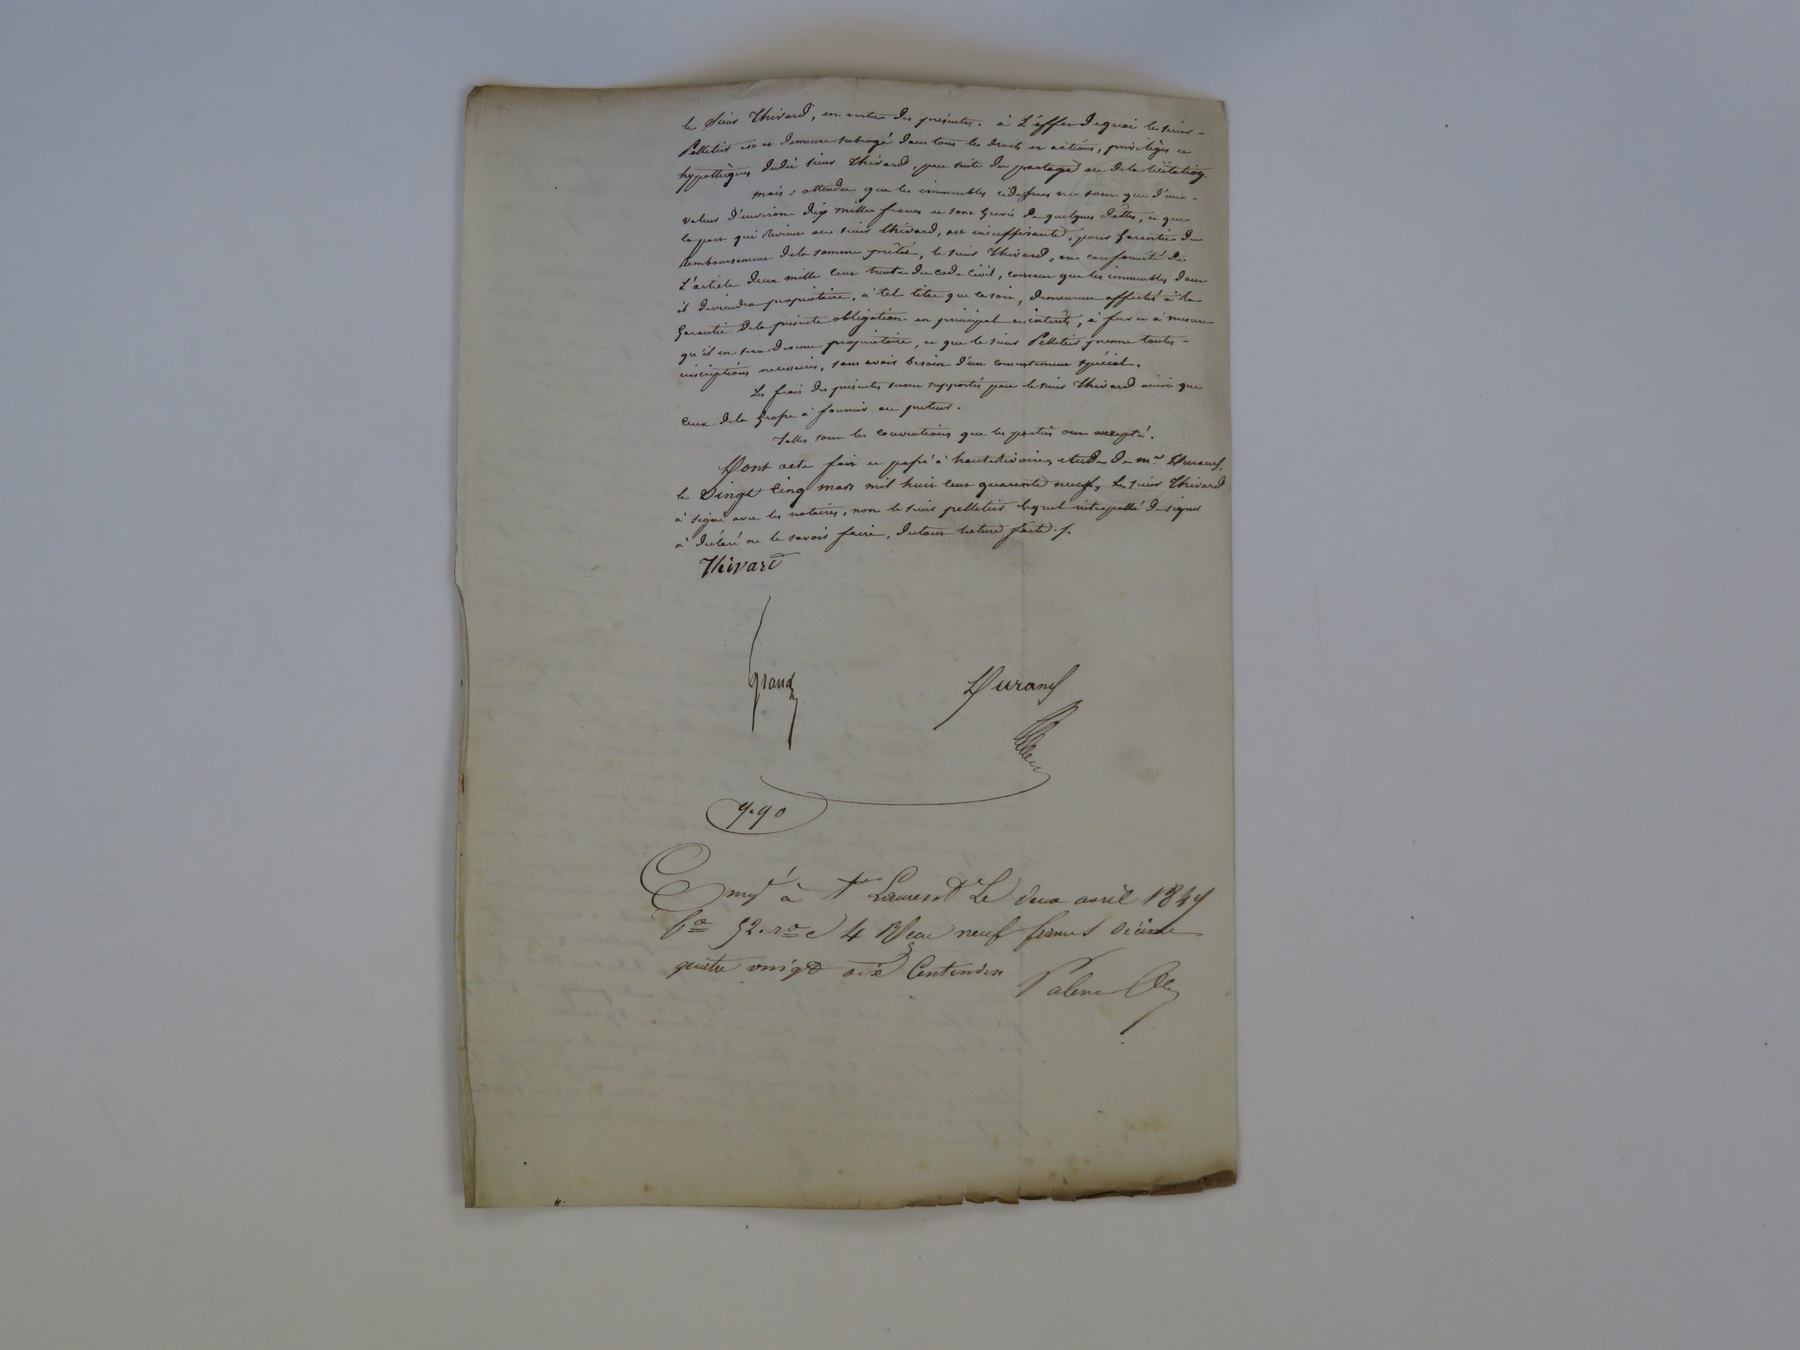 le sieur Thivard, en vertu des présentes. à L'effet de quoi le sieur
Pelletier est et demeure subrogé dans tous les droits et actions, privilèges et
hypothèques dudit sieur Thivard, par suite du partage ou de la licitation.
mais, attendu que les immeubles cidessus ne sont que d'une
valeur d'environ dix mille francs et sont Grevés de quelques dettes, et que
la part qui revient au sieur thivard, est insuffisante, pour Garantie du
remboursement de la somme prêtée, le sieur Thivard, en conformité de
L'article deux mille cent trente du code civil, consent que les immeubles dont
il deviendra propriétaire, à tel titre que ce soit, demeurent affectés à la
Garantie de la présente obligation en principal et intérêts, à fur et à mesure
qu'il en sera devenu propriétaire, et que le sieur Pelletier prenne toutes
inscriptions necessaires, sans avoir besoin d'un consentement spécial.
Les frais des présentes seront supportés par le sieur Thivard ainsi que
ceux de la Grosse à fournir au preteur.
Telles sont les conventions que les parties ont accepté.
Dont acte fait et passé à hauterivoire, etude de me. Durand,
le Vingt Cinq mars mil huit cent quarante neuf, Le sieur Thivard
à signé avec les notaires, non le sieur pelletier lequel interpellé de signer
à déclaré ne le savoir faire, du tout lecture faite ./.
Thivard
grand Durand
9.90
Enregé à St Laurent Le deux avril 1849
fo 52. ro c 4 Reçu neuf francs décime
quatre vingt dix Centimes